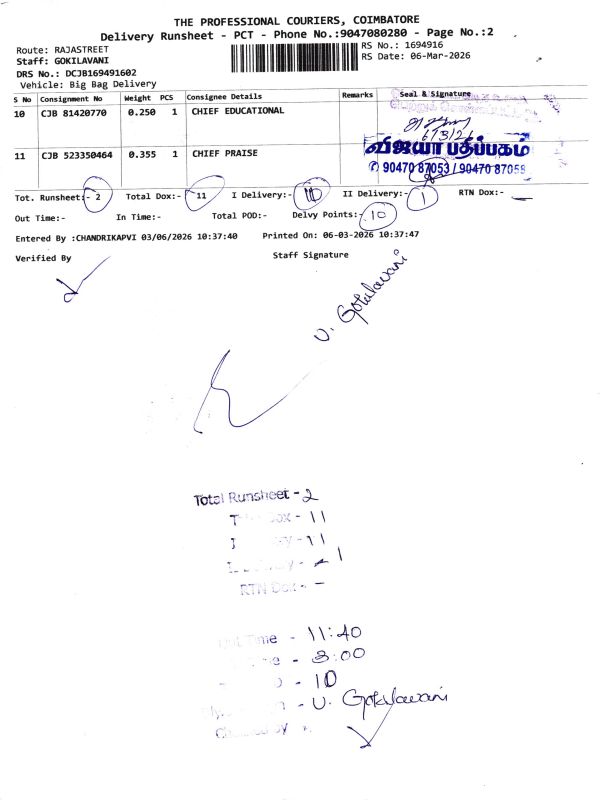 THE PROFESSIONAL COURIERS, COIMBATORE
Delivery Runsheet - PCT - Phone No.:9047080280 - Page No.:2
Route: RAJASTREET
RS No.: 1694916
Staff: GOKILAVANI
RS Date: 06-Mar-2026
DRS No.: DCJB169491602
Vehicle: Big Bag Delivery
S No Consignment No Weight PCS Consignee Details Remarks Seal & Signature
10 CJB 81420770 0.250 1 CHIEF EDUCATIONAL
6/3/26
11 CJB 523350464 0.355 1 CHIEF PRAISE
விஜயா பதிப்பகம்
90470 87053 / 90470 87058
Tot. Runsheet:- 2 Total Dox:- 11 I Delivery:- 10 II Delivery:- 1 RTN Dox:- —
Out Time:- In Time:- Total POD:- Delvy Points:- 10
Entered By :CHANDRIKAPVI 03/06/2026 10:37:40 Printed On: 06-03-2026 10:37:47
Verified By Staff Signature
U. Gokilavani
Total Runsheet - 2
- 11
- 11
- 1
RTN Dox - –
Out Time - 11:40
- 3:00
- 10
- U. Gokilavani